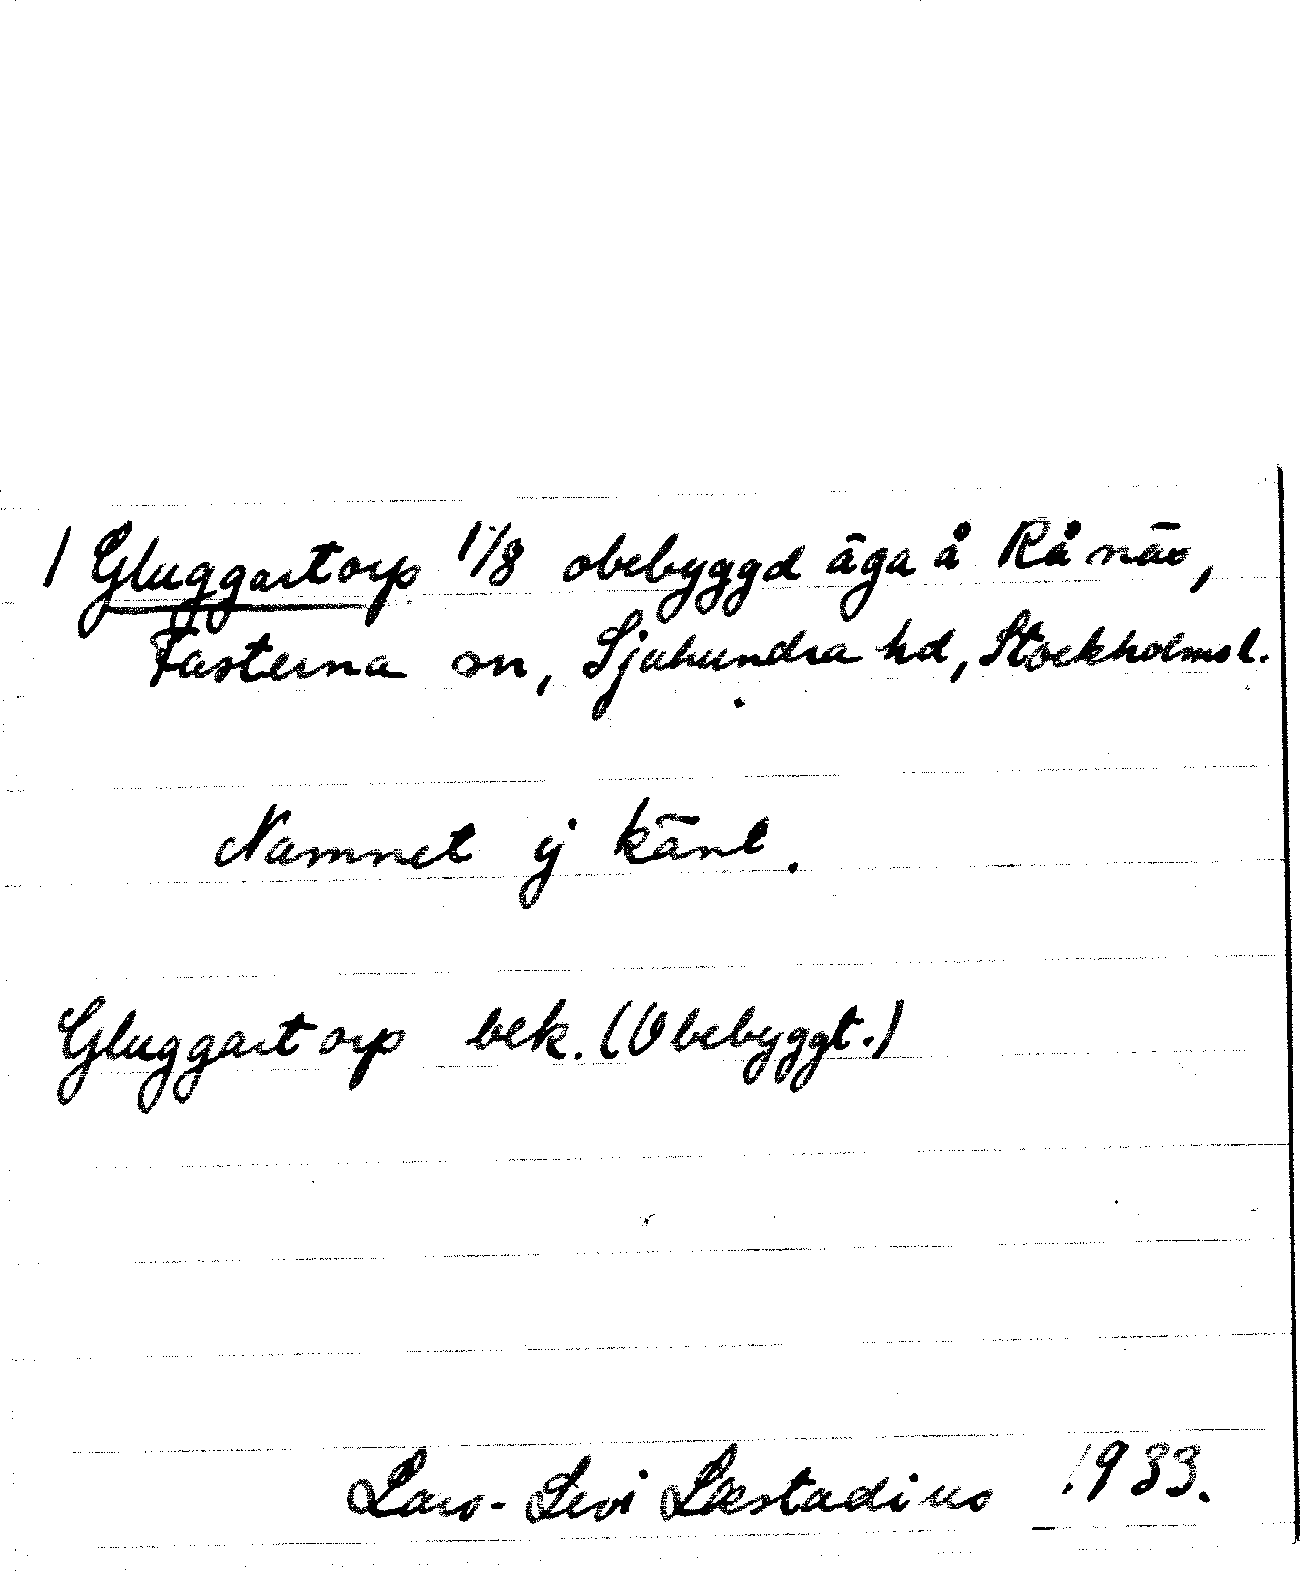 / Gluggartorp 1/8 obebyggd äga å Rånäs,
Fasterna sn, Sjuhundra hd, Stockholms l.
Namnet ej känt.
Gluggartorp bek. (Obebyggt.)
Lars-Levi Læstadius 1933.